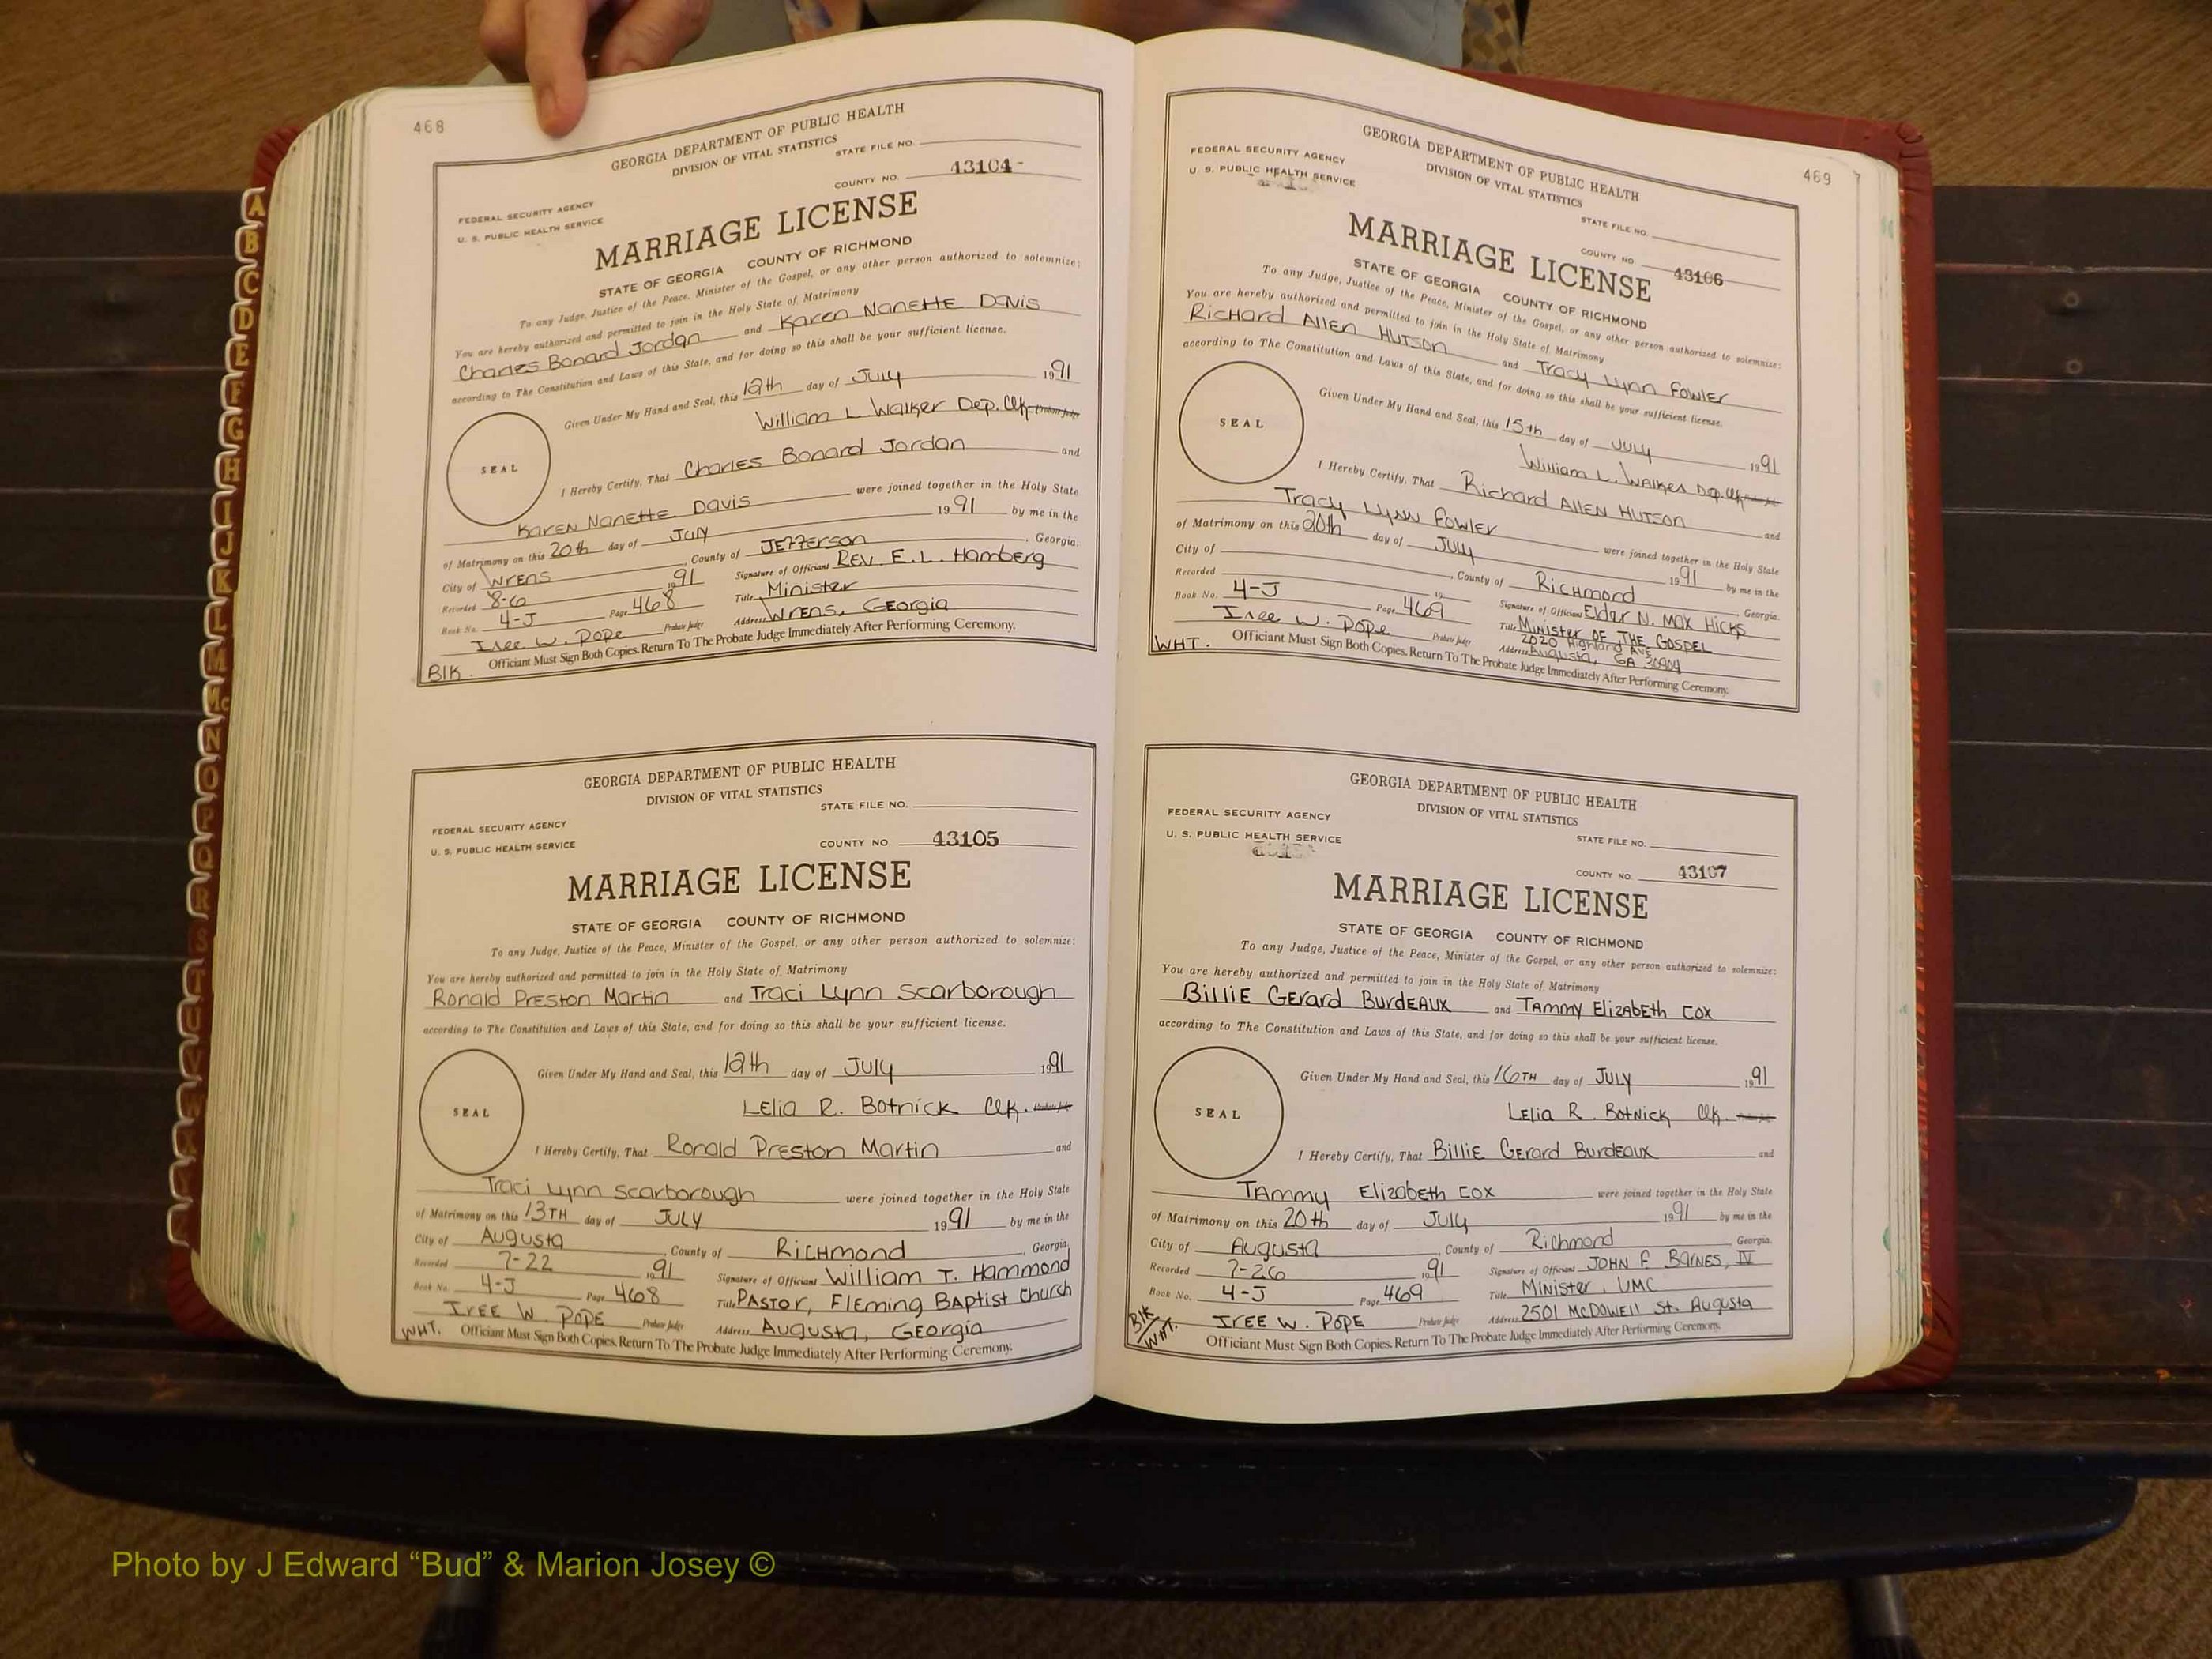 468
GEORGIA DEPARTMENT OF PUBLIC HEALTH
DIVISION OF VITAL STATISTICS
STATE FILE NO.
COUNTY NO. 43104
FEDERAL SECURITY AGENCY
U. S. PUBLIC HEALTH SERVICE
MARRIAGE LICENSE
STATE OF GEORGIA COUNTY OF RICHMOND
To any Judge, Justice of the Peace, Minister of the Gospel, or any other person authorized to solemnize:
You are hereby authorized and permitted to join in the Holy State of Matrimony
Charles Bonard Jordan and Karen Nanette Davis
according to The Constitution and Laws of this State, and for doing so this shall be your sufficient license.
Given Under My Hand and Seal, this 12th day of July 1991
William L. Walker Dep. Clk. Probate Judge
SEAL
I Hereby Certify, That Charles Bonard Jordan and
Karen Nanette Davis were joined together in the Holy State
of Matrimony on this 20th day of July 1991 by me in the
City of Wrens, County of Jefferson, Georgia.
Recorded 8-6 1991 Signature of Officiant Rev. E.L. Hamberg
Book No. 4-J Page 468 Title Minister
Iree W. Pope Probate Judge Address Wrens, Georgia
Blk. Officiant Must Sign Both Copies. Return To The Probate Judge Immediately After Performing Ceremony.
GEORGIA DEPARTMENT OF PUBLIC HEALTH
DIVISION OF VITAL STATISTICS
STATE FILE NO.
FEDERAL SECURITY AGENCY
U. S. PUBLIC HEALTH SERVICE
COUNTY NO. 43105
MARRIAGE LICENSE
STATE OF GEORGIA COUNTY OF RICHMOND
To any Judge, Justice of the Peace, Minister of the Gospel, or any other person authorized to solemnize:
You are hereby authorized and permitted to join in the Holy State of Matrimony
Ronald Preston Martin and Traci Lynn Scarborough
according to The Constitution and Laws of this State, and for doing so this shall be your sufficient license.
Given Under My Hand and Seal, this 12th day of July 1991
Lelia R. Botnick Clk. Probate Judge
SEAL
I Hereby Certify, That Ronald Preston Martin and
Traci Lynn Scarborough were joined together in the Holy State
of Matrimony on this 13TH day of JULY 1991 by me in the
City of Augusta, County of Richmond, Georgia.
Recorded 7-22 1991 Signature of Officiant William T. Hammond
Book No. 4-J Page 468 Title Pastor, Fleming Baptist Church
Iree W. Pope Probate Judge Address Augusta, Georgia
WHT. Officiant Must Sign Both Copies. Return To The Probate Judge Immediately After Performing Ceremony.
469
GEORGIA DEPARTMENT OF PUBLIC HEALTH
DIVISION OF VITAL STATISTICS
FEDERAL SECURITY AGENCY
U. S. PUBLIC HEALTH SERVICE
STATE FILE NO.
COUNTY NO. 43106
MARRIAGE LICENSE
STATE OF GEORGIA COUNTY OF RICHMOND
To any Judge, Justice of the Peace, Minister of the Gospel, or any other person authorized to solemnize:
You are hereby authorized and permitted to join in the Holy State of Matrimony
Richard Allen Hutson and Tracy Lynn Fowler
according to The Constitution and Laws of this State, and for doing so this shall be your sufficient license.
Given Under My Hand and Seal, this 15th day of July 1991
William L. Walker Dep. Clk. Probate Judge
SEAL
I Hereby Certify, That Richard Allen Hutson and
Tracy Lynn Fowler were joined together in the Holy State
of Matrimony on this 20th day of July 1991 by me in the
City of , County of Richmond Georgia.
Recorded 19 Signature of Officiant Elder N. Max Hicks
Book No. 4-J Page 469 Title Minister OF THE GOSPEL
Iree W. Pope Probate Judge Address 2020 Highland Ave Augusta, GA 30904
WHT. Officiant Must Sign Both Copies. Return To The Probate Judge Immediately After Performing Ceremony.
GEORGIA DEPARTMENT OF PUBLIC HEALTH
DIVISION OF VITAL STATISTICS
FEDERAL SECURITY AGENCY
U. S. PUBLIC HEALTH SERVICE
STATE FILE NO.
COUNTY NO. 43107
MARRIAGE LICENSE
STATE OF GEORGIA COUNTY OF RICHMOND
To any Judge, Justice of the Peace, Minister of the Gospel, or any other person authorized to solemnize:
You are hereby authorized and permitted to join in the Holy State of Matrimony
Billie Gerard Burdeaux and Tammy Elizabeth Cox
according to The Constitution and Laws of this State, and for doing so this shall be your sufficient license.
Given Under My Hand and Seal, this 16TH day of JULY 1991
Lelia R. Botnick Clk.
SEAL
I Hereby Certify, That Billie Gerard Burdeaux and
Tammy Elizabeth Cox were joined together in the Holy State
of Matrimony on this 20th day of July 1991 by me in the
City of Augusta, County of Richmond Georgia.
Recorded 7-26 1991 Signature of Officiant JOHN F. BARNES, IV
Book No. 4-J Page 469 Title Minister, UMC
Iree W. Pope Probate Judge Address 2501 McDowell St. Augusta
Blk/WHT. Officiant Must Sign Both Copies. Return To The Probate Judge Immediately After Performing Ceremony.
A
B
C
D
E
F
G
H
I
J
K
L
M
Mc
N
O
P
Q
R
S
T
U
V
W
Photo by J Edward “Bud” & Marion Josey ©